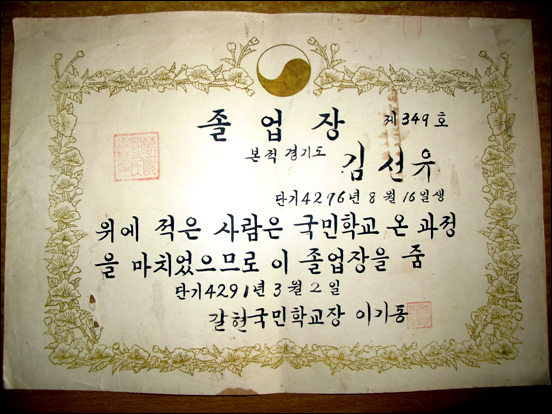 졸업장
제349호
본적 경기도
김선유
단기4276년 8월 16일생
위에 적은 사람은 국민학교 온 과정
을 마치었으므로 이 졸업장을 줌
단기4291년 3월 2일
갈현국민학교장 이기동